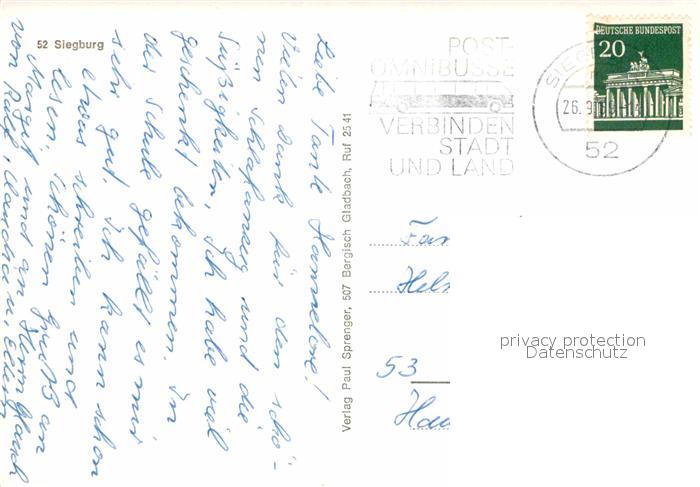 52 Siegburg
Liebe Tante Hannelore!
Vielen Dank für den schö-
nen Schlafanzug und die
Süßigkeiten, ich habe viel
geschenkt bekommen. In
der Schule gefällt es mir
sehr gut. Ich kann schon
etwas schreiben und
lesen. Schönen Gruß an
Margit und an Herrn
von Ralf, Claudia u. Eltern
Verlag Paul Sprenger, 507 Bergisch Gladbach, Ruf 2541
POST-
OMNIBUSSE
VERBINDEN
STADT
UND LAND
SIEG
26.9
52
DEUTSCHE BUNDESPOST
20
Fam
Hels
53
Hau
privacy protection
Datenschutz